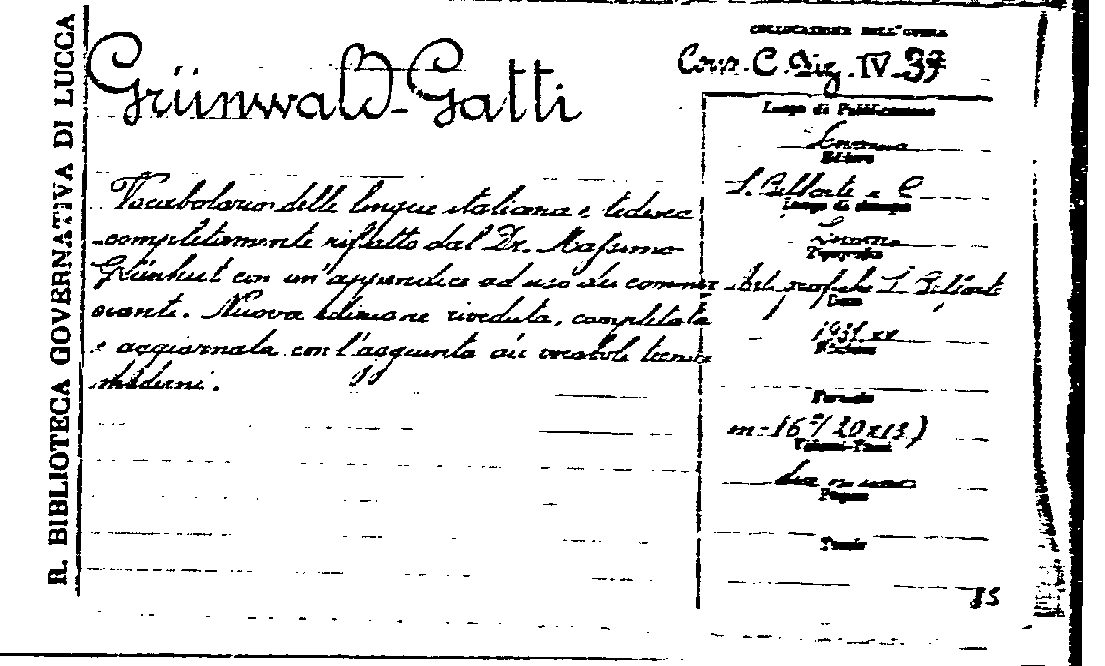 R. BIBLIOTECA GOVERNATIVA DI LUCCA
Grünwald-Gatti
Vocabolario delle lingue italiana e tedesca
completamente rifatto dal Dr. Massimo
Grünhut con un'appendice ad uso dei commer
cianti. Nuova edizione riveduta, completata
e aggiornata con l'aggiunta di vocaboli tecnici
moderni.
COLLOCAZIONE DELL'OPERA
Cons. C. Diz. IV. 37
Luogo di Pubblicazione
Livorno
Editore
S. Belforte e C
Luogo di stampa
Livorno
Tipografia
Arti grafiche S. Belforte
Data
Edizione
Formato
m-16°(20x13)
Volumi-Tomi
Pagine
Tavole